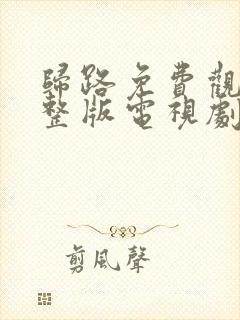 歸路免費觀
整版電視劇
剪風聲